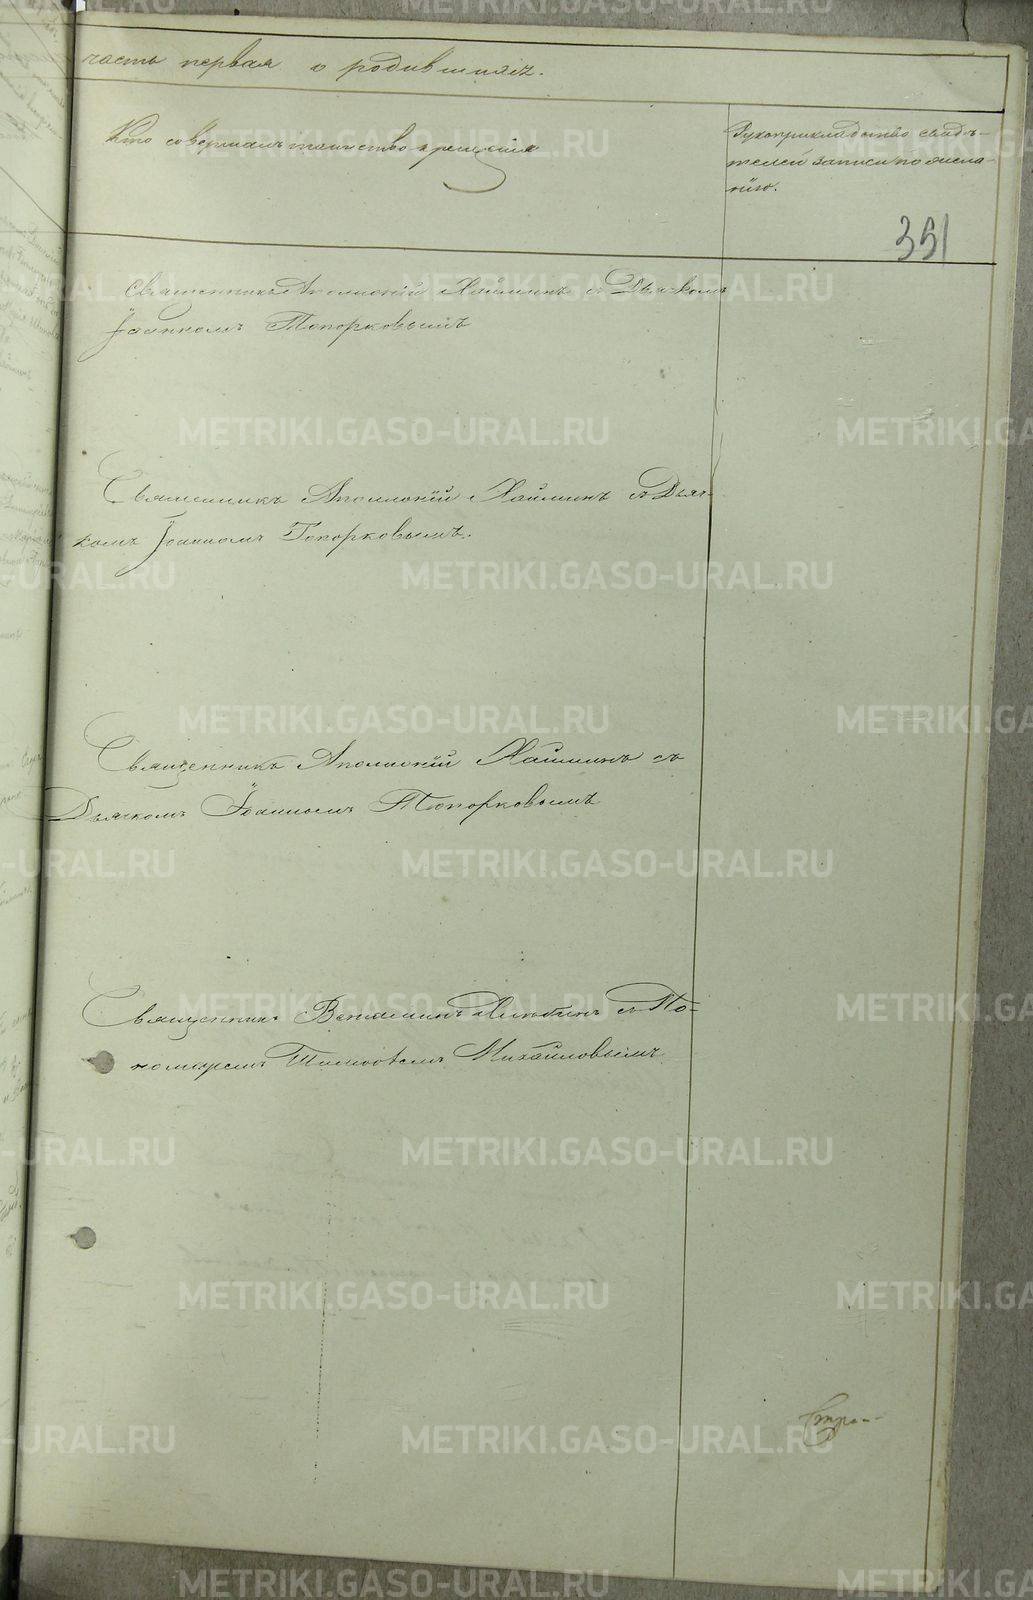 часть первая о родившихся.
Кто совершалъ таинство крещенія
Рукоприкладство свидѣ-
телей записи по жела-
нію.
351
Священникъ Аполлоній Хайминъ съ Дьячкомъ
Іоанномъ Топорковымъ
Священникъ Аполлоній Хайминъ съ Дьяч-
комъ Іоанномъ Топорковымъ.
Священникъ Аполлоній Хайминъ съ
Дьячкомъ Іоанномъ Топорковымъ
Священникъ Веніаминъ Хлыбинъ съ По-
номаремъ Тимофеемъ Михайловымъ
Стра--
METRIKI.GASO-URAL.RU